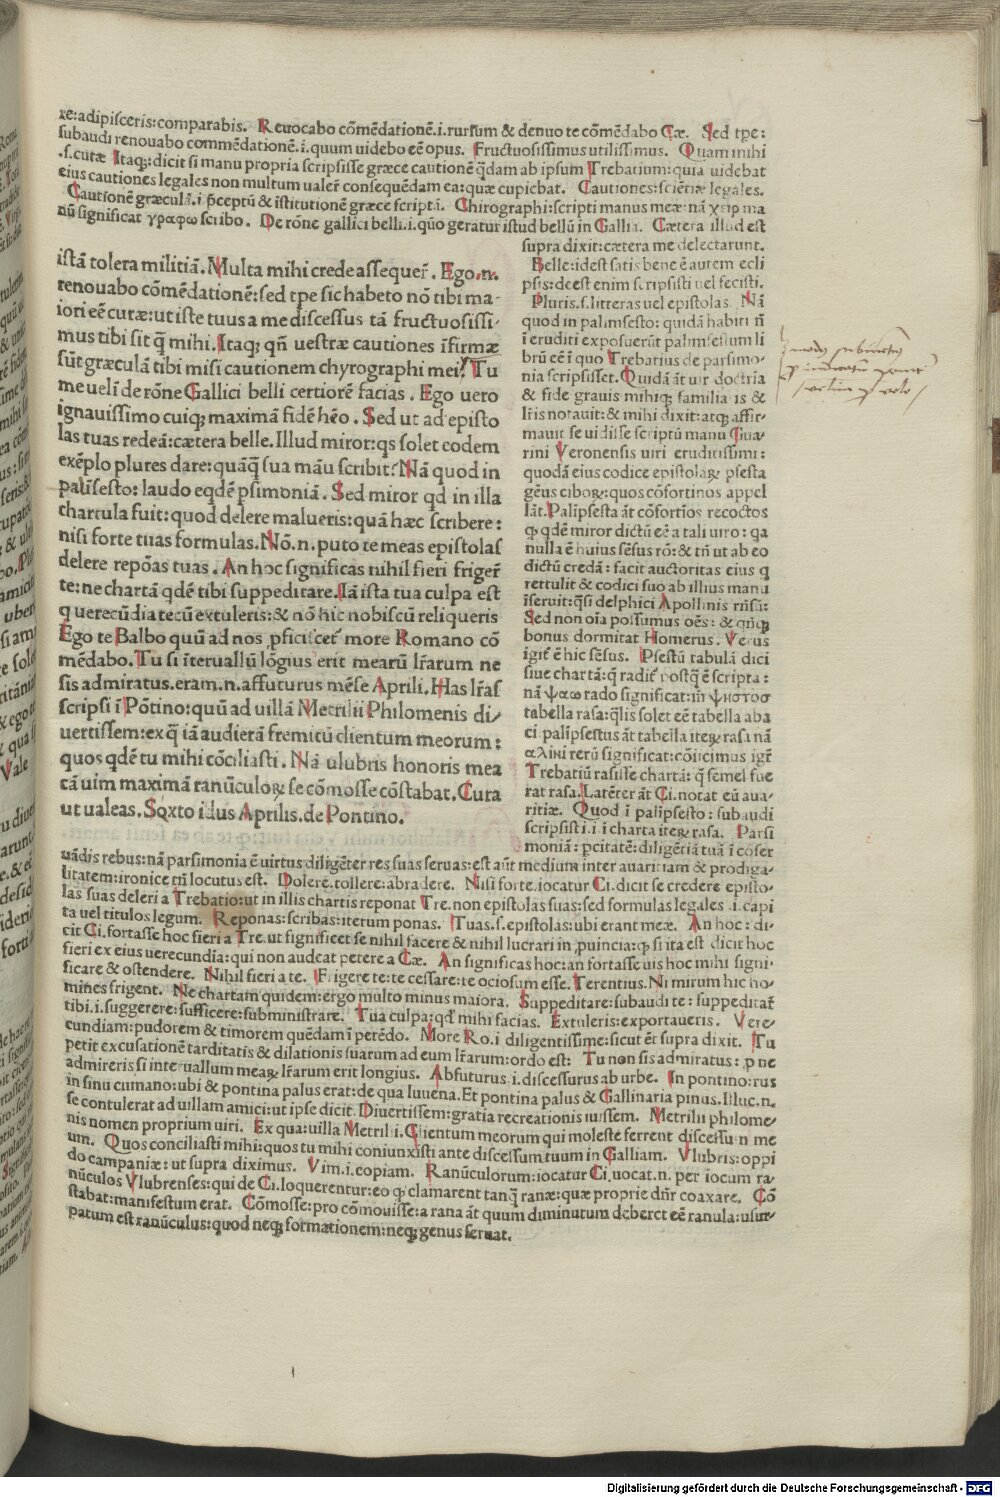 re:adipisceris:comparabis. Reuocabo cõmẽdationẽ.i.rursum & denuo te cõmẽdabo Cæ. Sed tpe:
subaudi renouabo commẽdationẽ.i.quum uidebo eẽ opus. Fructuosissimus utilissimus. Quam mihi
.s.curæ Itaq;:dicit si manu propria scripsisse græce cautionẽ q̃dam ab ipsum Trebatium:quia uidebat
eius cautiones legales non multum ualer̃ consequẽdam ea:quæ cupiebat. Cautiones:sciẽtiæ legales.
Cautionẽ græculã.i p̃ceptũ & ĩstitutionẽ græce scriptã. Chirographi:scripti manus meæ:nã χειρ ma
nũ significat γραφω scribo. De rõne gallici belli.i.quõ geratur istud bellũ in Gallia. Cætera illud est
istã tolera militiã. Multa mihi crede assequer̃. Ego.n.
renouabo cõmẽdationẽ:sed tpe sic habeto nõ tibi ma-
iori eẽ curæ:ut iste tuus a me discessus tã fructuosissi-
mus tibi sit q̃ mihi. Itaq; qñ uestræ cautiones ĩfirmæ
sũt græculã tibi misi cautionem chyrographi mei? Tu
me uelĩ de rõne Gallici belli certiorẽ facias. Ego uero
ignauissimo cuiq; maximã fidẽ hẽo. Sed ut ad episto
las tuas redeã:cætera belle. Illud miror:qs solet eodem
exẽplo plures dare:quãq̃ sua mãu scribit? Nã quod in
palĩsesto:laudo eqdẽ psimoniã. Sed miror qd in illa
chartula fuit:quod delere malueris:quã hæc scribere:
nisi forte tuas formulas. Nõ.n.puto te meas epistolas
delere repõas tuas. An hoc significas nihil fieri friger̃
te:ne chartã qdẽ tibi suppeditare. Iã ista tua culpa est
q uerecũdiã tecũ extuleris:& nõ hic nobiscũ reliqueris
Ego te Balbo quũ ad nos pficiscet̃ more Romano cõ
mẽdabo. Tu si ĩteruallũ lõgius erit mearũ lr̃arum ne
sis admiratus.eram.n.affuturus mẽse Aprili. Has lr̃as
scripsi ĩ Põtino:quũ ad uillã Metrilii Philomenis di/
uertissem:ex q̃ iã audierã fremitũ clientum meorum:
quos qdẽ tu mihi cõciliasti. Nã ulubris honoris mea
cã uim maximã ranũculoꝝ se cõmosse cõstabat. Cura
ut ualeas. Sexto idus Aprilis.de Pontino.
supra dixit:cætera me delectarunt.
Belle:idest satis bene ẽ autem ecli
psis:deest enim scripsisti uel fecisti.
Pluris.s.litteras uel epistolas. Nã
quod in palimsesto: quidã habiti ñ
ĩ eruditi exposuerũt palimsestum li
brũ eẽ ĩ quo Trebatius de parsimo-
nia scripsisset. Quidã ãt uir doctria
& fide grauis mihiq; familia is &
lr̃is notauit: & mihi dixit:atq; affir-
mauit se uidisse scriptũ manu Gua-
rini Veronensis uiri eruditissimi:
quodã eius codice epistolaꝝ psesta
gẽus ciboꝝ:quos cõfortinos appel
lãt. Palipsesta ãt cõfortios recoctos
ꝙ qdẽ miror dictũ eẽ a tali uiro: qa
nulla ẽ huius sẽsus rõ:& tñ ut ab eo
dictũ credã: facit auctoritas eius q
rettulit & codici suo ab illius manu
ĩseruit:q̃si delphici Apollinis rñsã:
Sed non oĩa possumus oẽs: & qñq;
bonus dormitat Homerus. Verus
igit̃ ẽ hic sẽsus. Psestũ tabulã dici
siue chartã:q̃ radit̃ postq̃ ẽ scripta:
nã ψαω rado significat:iñ ψηστοσ
tabella rasa:q̃lis solet eẽ tabella aba
ci.palipsestus ãt tabella iteꝝ rasa nã
αλινι rerũ significat:cõiicimus igr̃
Trebatiũ rasisse chartã: q̃ semel fue
rat rasa. Latẽter ãt Ci.notat eũ aua-
ritiæ. Quod ĩ palipsesto: subaudi
scripsisti.i ĩ charta iteꝝ rasa. Parsi
moniã: pcitatẽ:diligẽtiã tuã ĩ cõser
uãdis rebus:nã parsimonia ẽ uirtus diligẽter res suas seruas:est aũt medium inter auaritiam & prodiga-
litatem:ironice tñ locutus est. Dolere.tollere:abradere. Nisi forte.iocatur Ci.dicit se credere episto-
las suas deleri a Trebatio:ut in illis chartis reponat Tre.non epistolas suas:sed formulas legales .i.capi
ta uel titulos legum. Reponas:scribas:iterum ponas. Tuas.s.epistolas:ubi erant meæ. An hoc: di-
cit Ci.fortasse hoc fieri a Tre.ut significet se nihil facere & nihil lucrari in puincia:ꝙ si ita est dicit hoc
fieri ex eius uerecundia:qui non audeat petere a Cæ. An significas hoc:an fortasse uis hoc mihi signi-
ficare & ostendere. Nihil fieri a te. Frigere te:te cessare:te ociosum esse. Terentius. Ni mirum hic ho-
mines frigent. Ne chartam quidem:ergo multo minus maiora. Suppeditare:subaudi te: suppeditat̃
tibi.i.suggerere:sufficere:subministrare. Tua culpa:qd̃ mihi facias. Extuleris:exportaueris. Vere-
cundiam:pudorem & timorem quẽdam ĩ petẽdo. More Ro.i diligentissime:sicut ẽt supra dixit. Tu
petit excusationẽ tarditatis & dilationis suarum ad eum lr̃arum:ordo est: Tu non sis admiratus: p ne
admireris si interuallum meaꝝ lr̃arum erit longius. Abfuturus.i.discessurus ab urbe. In pontino:rus
in sinu cumano:ubi & pontina palus erat:de qua Iuuena.Et pontina palus & Gallinaria pinus.Illuc.n.
se contulerat ad uillam amici:ut ipse dicit. Diuertissem:gratia recreationis iuissem. Metrilii philome-
nis nomen proprium uiri. Ex qua:uilla Metrili.i. Clientum meorum qui moleste ferrent discessum me
um. Quos conciliasti mihi:quos tu mihi coniunxisti ante discessum tuum in Galliam. Vlubris:oppi
do campaniæ: ut supra diximus. Vim.i.copiam. Ranũculorum:iocatur Ci.uocat.n. per iocum ra-
nũculos Vlubrenses:qui de Ci.loquerentur:eo ꝙ clamarent tanq̃ ranæ:quæ proprie dñr coaxare. Cõ
stabat:manifestum erat. Cõmosse:pro cõmouisse:a rana ãt quum diminutum deberet eẽ ranula:usur-
patum est ranũculus:quod neq; formationem:neq; genus seruat.
Digitalisierung gefördert durch die Deutsche Forschungsgemeinschaft - DFG